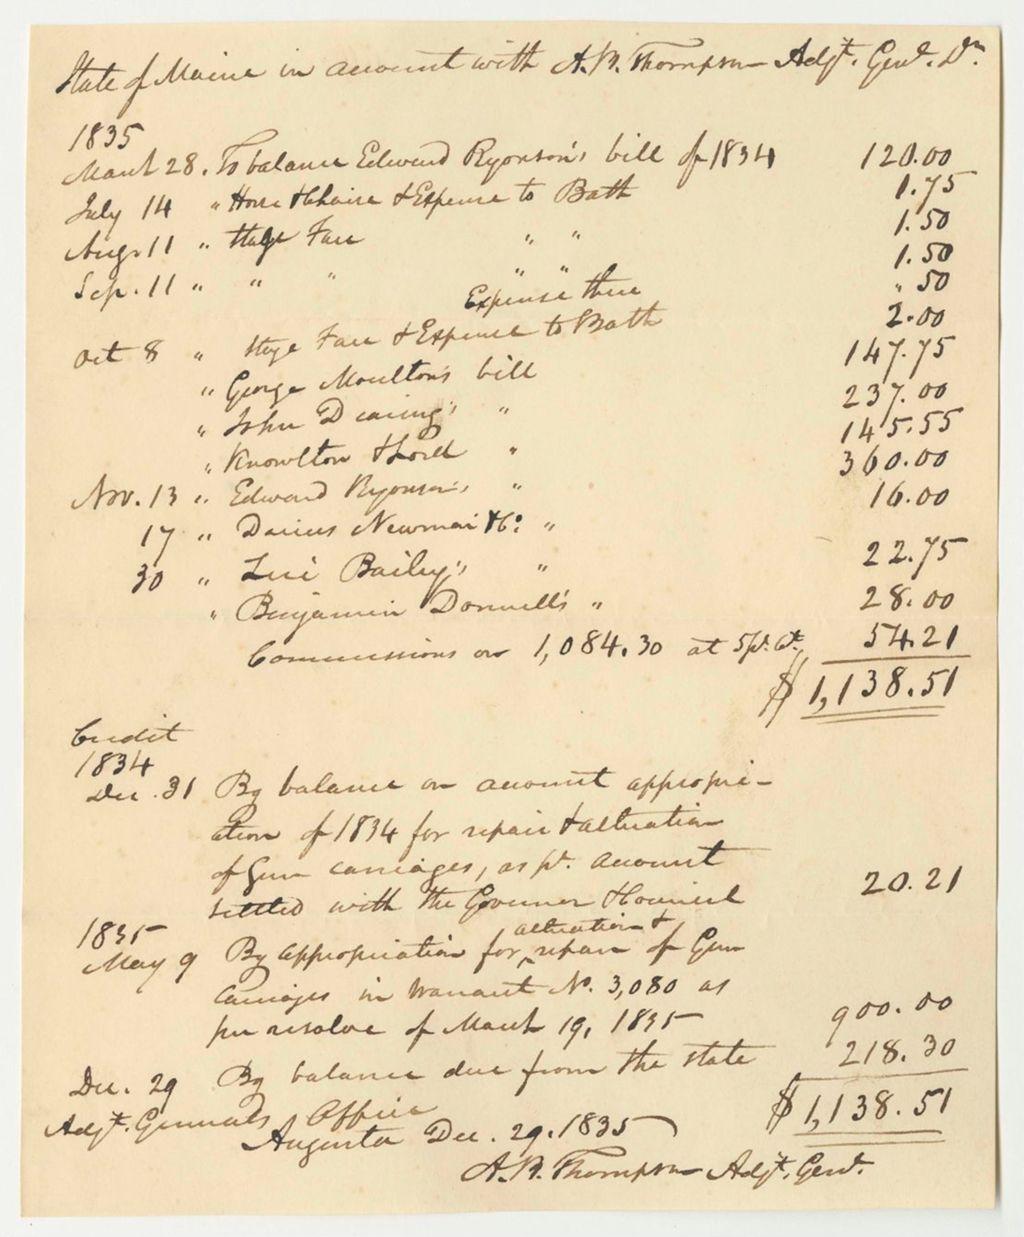 State of Maine in account with A.B. Thompson Adjt. Genl. Dr
1835
March 28. To balance Edward Ryonson's bill of 1834 120.00
July 14 " Horse & Chaise & Expense to Bath 1.75
Aug. 11 " Stage Fare " " 1.50
Sep. 11 " " " " " 1.50
Expense there " 50
Oct 8 " Stage Fare & Expense to Bath 2.00
" George Moulton's bill 147.75
" John Dearing's " 237.00
" Knowlton & Lord " 145.55
Nov. 13 " Edward Ryonson's " 360.00
17 " Darius Newman & Co: " 16.00
30 " Levi Bailey's " 22.75
" Benjamin Donnell's " 28.00
Commissions on 1,084.30 at 5 pr. Ct. 54.21
$ 1,138.51
Credit
1834
Dec. 31 By balance on account appropri-
ation of 1834 for repair & alteration
of Gun carriages, as pr. account
settled with the Governor & Council 20.21
1835
May 9 By appropriation for alteration & repair of Gun
Carriages in Warrant No. 3,080 as
per resolve of March 19, 1835 900.00
Dec. 29 By balance due from the state 218.30
$ 1,138.51
Adjt. Generals Office
Augusta Dec. 29. 1835
A.B. Thompson Adjt. Genl.